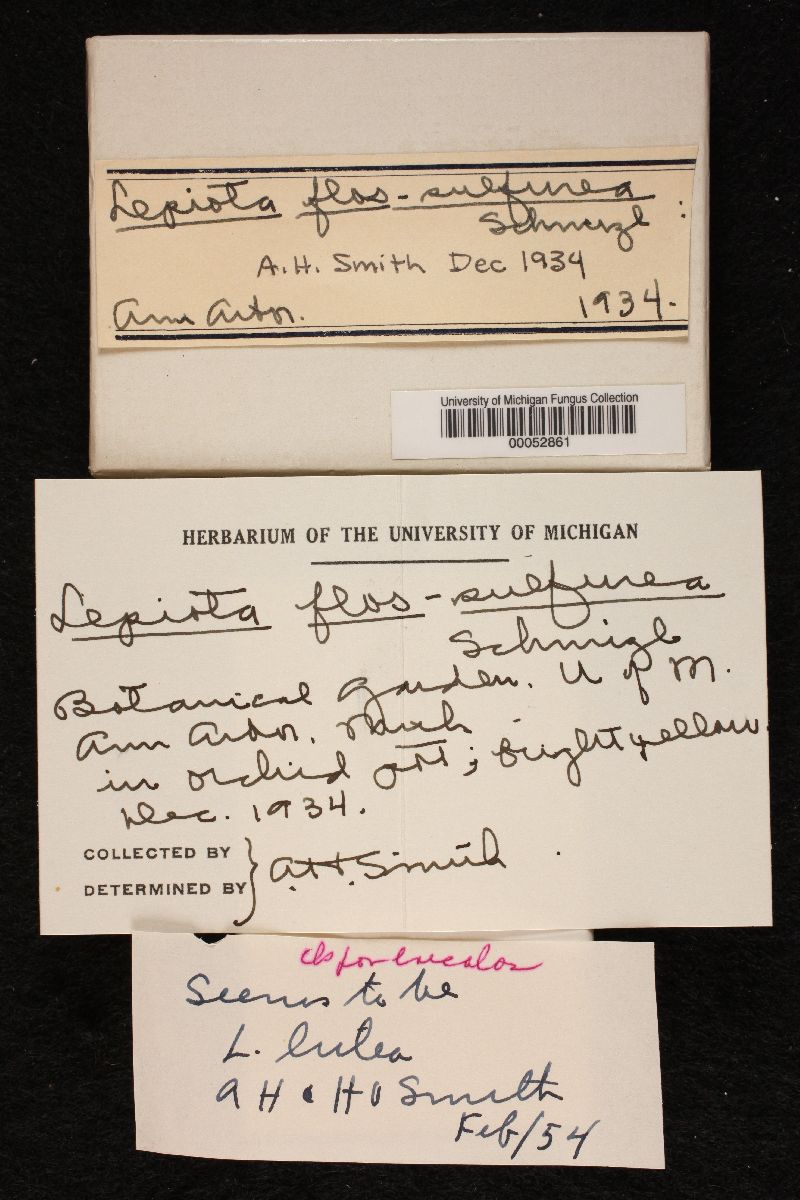 Lepiota flos-sulfurea
Schnizl
A.H. Smith Dec 1934
Ann Arbor. 1934.
University of Michigan Fungus Collection
00052861
HERBARIUM OF THE UNIVERSITY OF MICHIGAN
Lepiota flos-sulfurea
Schnizl
Botanical Garden. U of M.
Ann Arbor. Mich
in orchid pot; bright yellow.
Dec. 1934.
COLLECTED BY
DETERMINED BY } A.H. Smith
Seems to be
L. lutea
A H & H V Smith
Feb/54